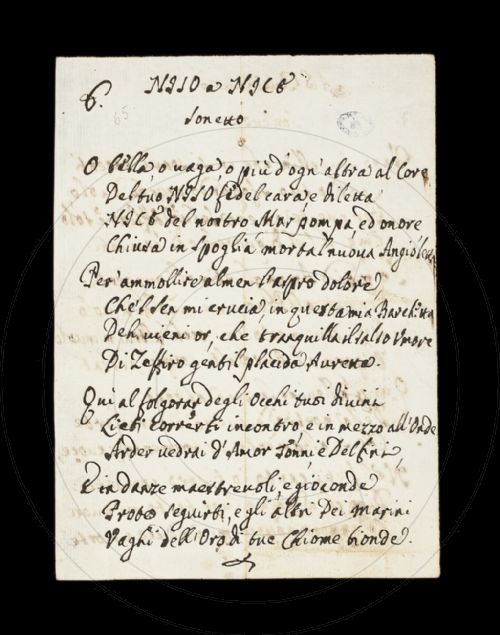 6.
NISO a NICE
Sonetto
65
O bella, o vaga, o più d'ogn'altra al Core
Del tuo NISO fidel cara, e diletta
NICE del nostro Mar pompa, ed onore
Chiusa in spoglia mortal nuova Angioletta
Per ammollire almen l'aspro dolore
Che'l sen mi crucia, in questa mia Barchetta
Deh vieni or, che tranquilla il salso Umore
Di Zeffiro gentil placida Auretta.
Qui al folgorar degli Occhi tuoi divini
Lieti correrti incontro, e in mezzo all'Onde
Arder vedrai d'Amor Tonni e Delfini,
E in danze maestrevoli, e gioconde
Proteo seguirti, e gli altri Dei Marini
Vaghi dell'Oro di tue Chiome bionde.